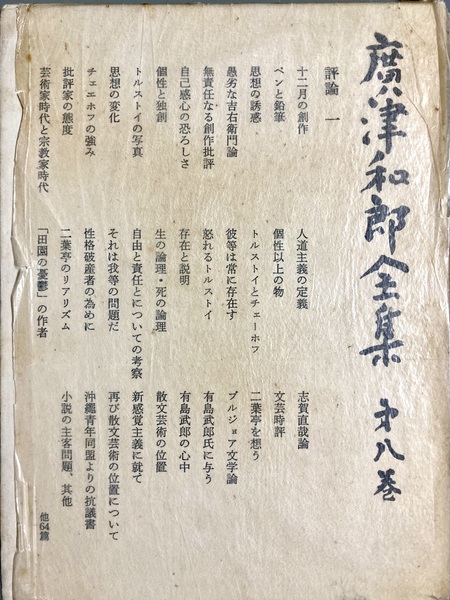 廣津和郎全集 第八巻
評論 一
十二月の創作
ペンと鉛筆
思想の誘惑
愚劣な吉右衛門論
無責任なる創作批評
自己感心の恐ろしさ
個性と独創
トルストイの写真
思想の変化
チェエホフの強み
批評家の態度
芸術家時代と宗教家時代
人道主義の定義
個性以上の物
トルストイとチェーホフ
彼等は常に存在す
怒れるトルストイ
存在と説明
生の論理・死の論理
自由と責任とについての考察
それは我等の問題だ
性格破産者の為めに
二葉亭のリアリズム
「田園の憂鬱」の作者
志賀直哉論
文芸時評
二葉亭を想う
ブルジョア文学論
有島武郎氏に与う
有島武郎の心中
散文芸術の位置
新感覚主義に就て
再び散文芸術の位置について
沖縄青年同盟よりの抗議書
小説の主客問題、其他
他64篇